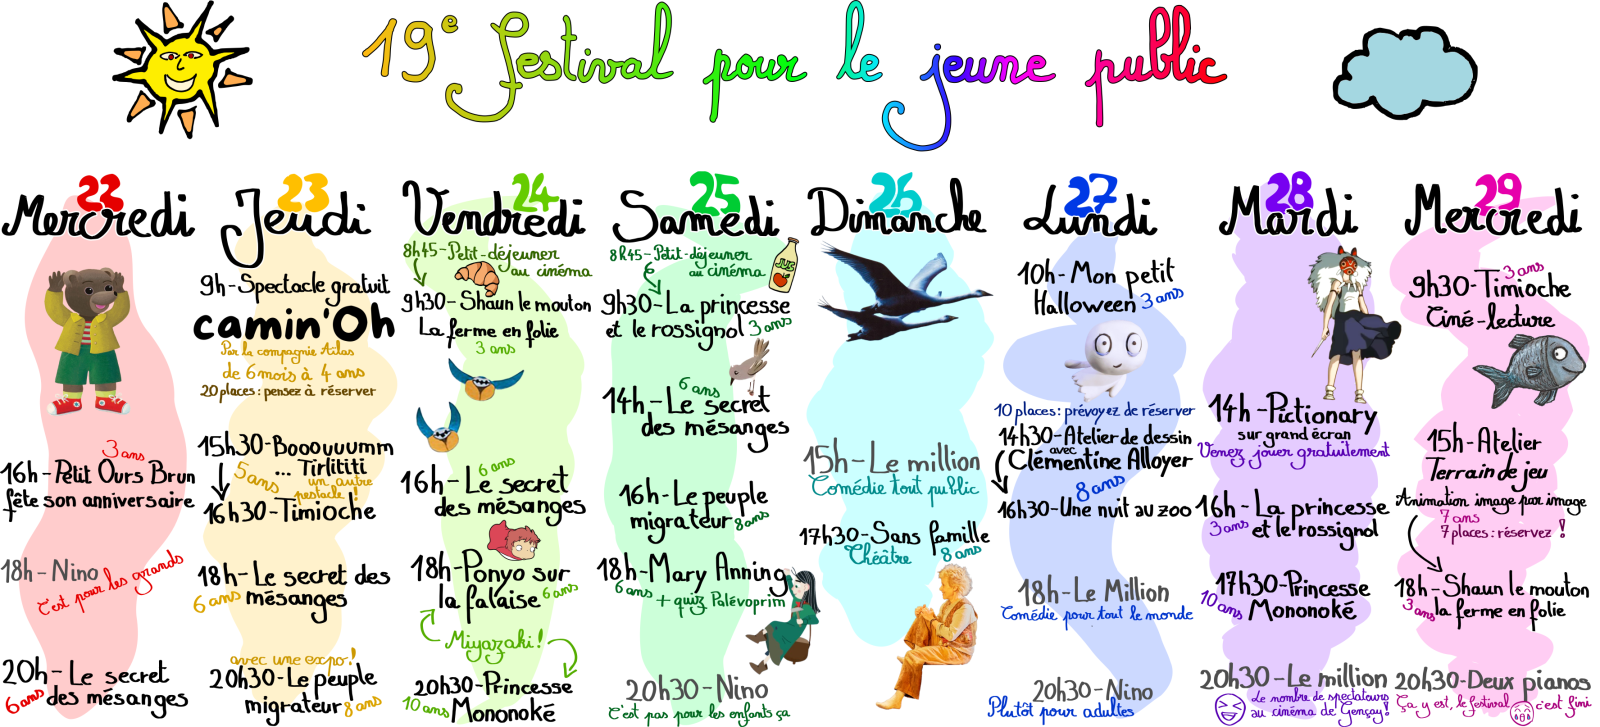 19e festival pour le jeune public
22
Mercredi
3 ans
16h - Petit Ours Brun
fête son anniversaire
18h - Nino
C'est pour les grands
20h - Le secret
6 ans des mésanges
23
Jeudi
9h - Spectacle gratuit
camin'Oh
Par la compagnie Atlas
de 6 mois à 4 ans
20 places : pensez à réserver
15h30 - Booouuumm
5 ans ... Tirlititi
un autre
pestacle !
16h30 - Timioche
18h - Le secret des
6 ans mésanges
avec une expo !
20h30 - Le peuple
migrateur 8 ans
24
Vendredi
8h45 - Petit-déjeuner
au cinéma
9h30 - Shaun le mouton
La ferme en folie
3 ans
6 ans
16h - Le secret
des mésanges
18h - Ponyo sur
la falaise 6 ans
Miyazaki !
20h30 - Princesse
10 ans Mononoké
25
Samedi
8h45 - Petit-déjeuner
au cinéma
JUS
9h30 - La princesse
et le rossignol 3 ans
6 ans
14h - Le secret
des mésanges
16h - Le peuple
migrateur 8 ans
18h - Mary Anning
6 ans + quiz Palévoprim
20h30 - Nino
C'est pas pour les enfants ça
26
Dimanche
15h - Le million
Comédie tout public
17h30 - Sans famille
Théâtre 8 ans
27
Lundi
10h - Mon petit
Halloween 3 ans
10 places : prévoyez de réserver
14h30 - Atelier de dessin
avec
Clémentine Alloyer
8 ans
16h30 - Une nuit au zoo
18h - Le Million
Comédie pour tout le monde
20h30 - Nino
Plutôt pour adultes
28
Mardi
14h - Pictionary
sur grand écran
Venez jouer gratuitement
16h - La princesse
3 ans et le rossignol
17h30 - Princesse
10 ans Mononoké
20h30 - Le million
Le nombre de spectateurs
au cinéma de Gençay !
29
Mercredi
3 ans
9h30 - Timioche
Ciné-lecture
15h - Atelier
Terrain de jeu
Animation image par image
7 ans
7 places : réservez !
18h - Shaun le mouton
3 ans la ferme en folie
20h30 - Deux pianos
Ça y est, le festival c'est fini